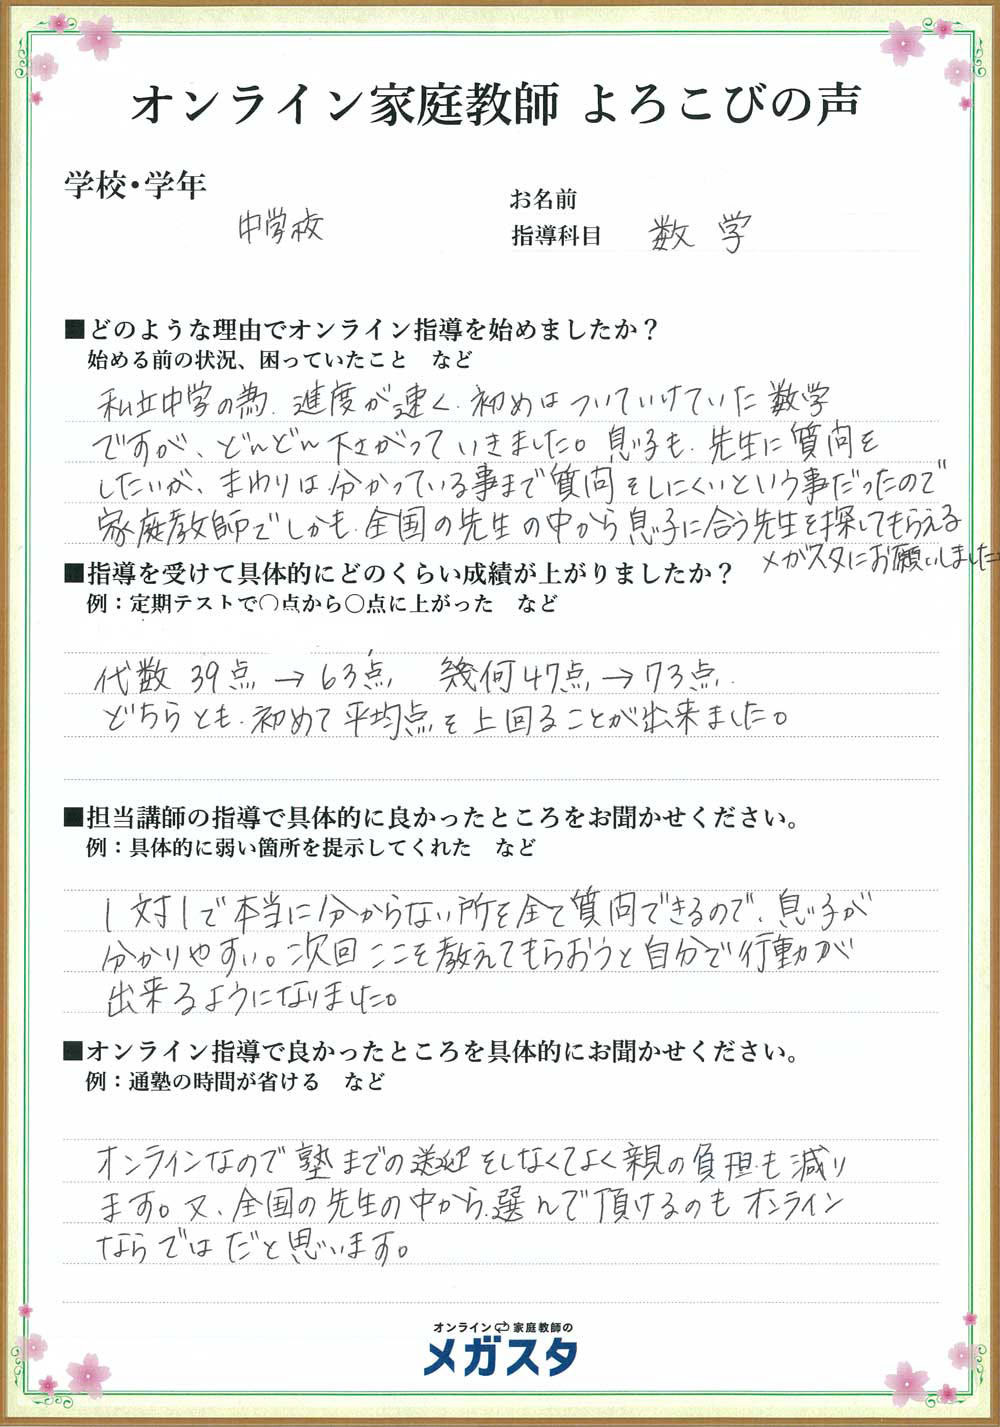 オンライン家庭教師 よろこびの声
学校・学年
中学校
お名前
指導科目 数学
■どのような理由でオンライン指導を始めましたか?
始める前の状況、困っていたこと など
私立中学の為、進度が速く、初めはついていけていた数学
ですが、どんどん下さがっていきました。息子も、先生に質問を
したいが、まわりは分かっている事まで質問をしにくいという事だったので
家庭教師でしかも、全国の先生の中から息子に合う先生を探してもらえる
メガスタにお願いしました
■指導を受けて具体的にどのくらい成績が上がりましたか?
例:定期テストで〇点から〇点に上がった など
代数 39点→63点 幾何47点→73点.
どちらとも、初めて平均点を上回ることが出来ました。
■担当講師の指導で具体的に良かったところをお聞かせください。
例:具体的に弱い箇所を提示してくれた など
1対1で本当に分からない所を全て質問できるので、息子が
分かりやすい。次回ここを教えてもらおうと自分で行動が
出来るようになりました。
■オンライン指導で良かったところを具体的にお聞かせください。
例:通塾の時間が省ける など
オンラインなので塾までの送迎をしなくてよく親の負担も減り
ます。又、全国の先生の中から選んで頂けるのもオンライン
ならではだと思います。
オンライン家庭教師の
メガスタ